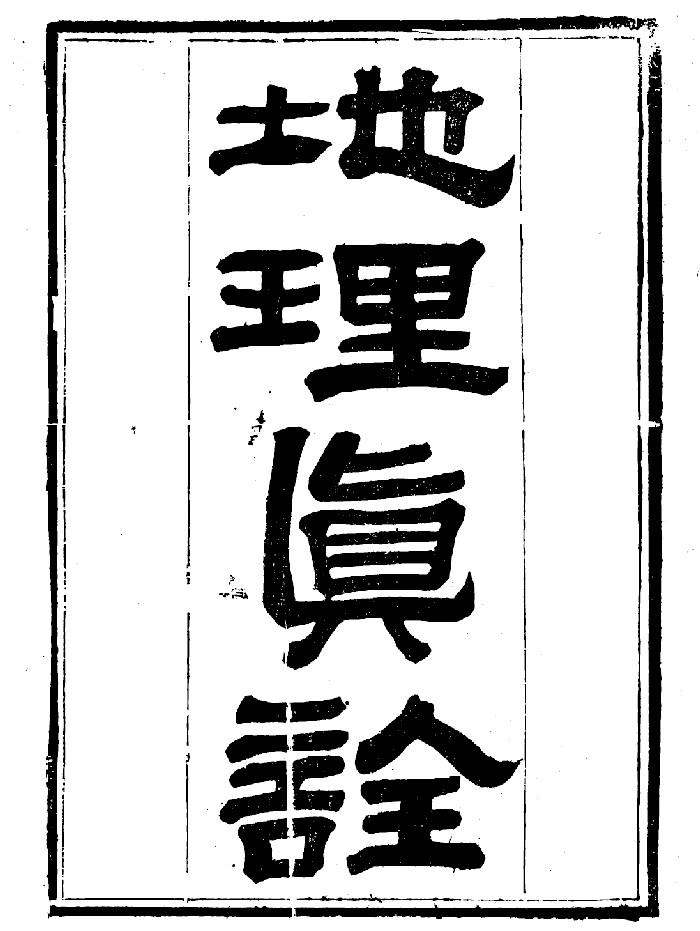 地理眞詮